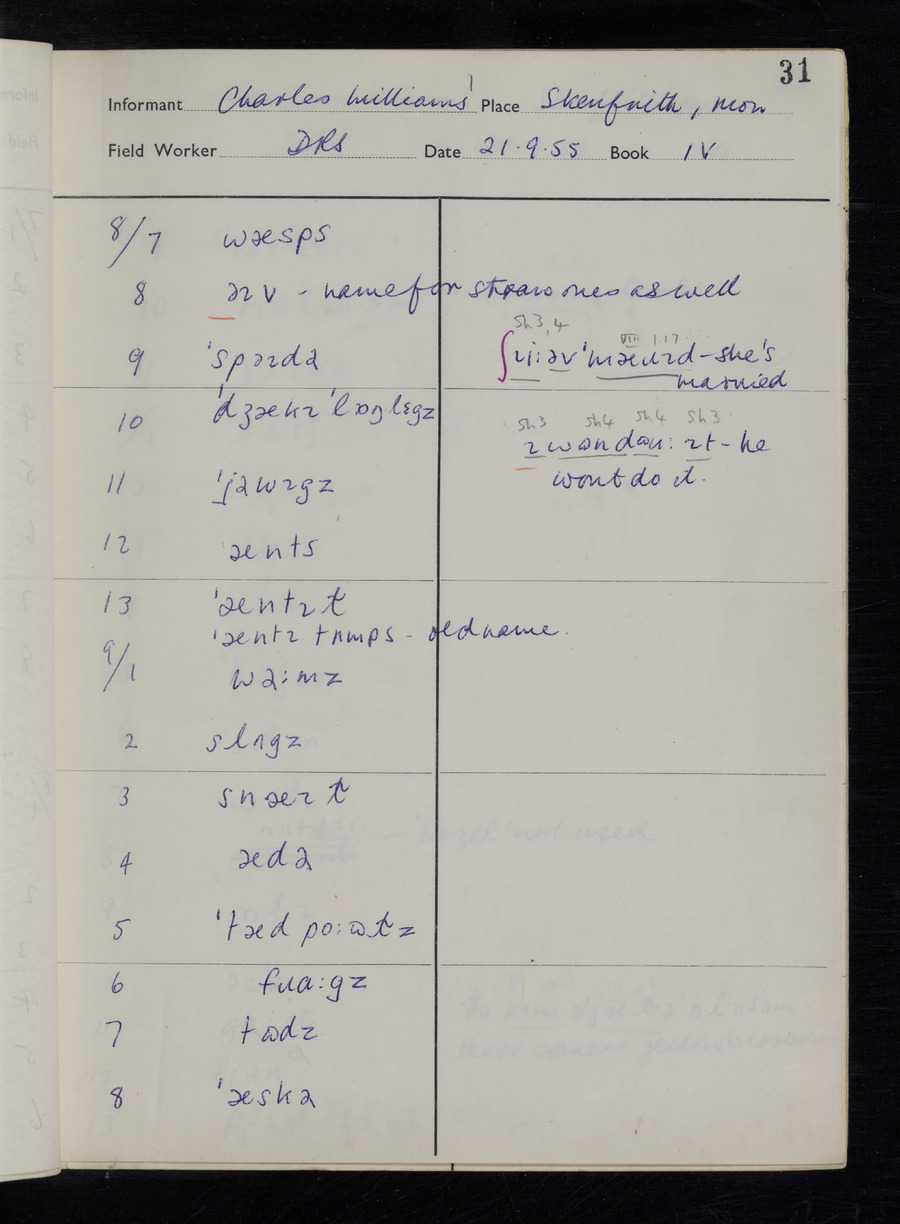 31
Informant Charles Williams Place Skenfrith, Mon
Field Worker DRS Date 21.9.55 Book IV
8/7 wæsps
8 əɪv - name for straw ones as well
Sh3,4
VIII 1.17
9 ˈspəɪdə ʃɪi:əv ˈmæɹɪd - she's
married
10 ˈdʒækɪ ˈlɒŋlɛgz
Sh3 Sh4 Sh4 Sh3
ɪ wɒndəu: ɪt - he
wont do it.
11 ˈjəwɪgz
12 ænts
13 ˈæntɪt
ˈæntɪ tʌmps - old name.
9/1 wə:mz
2 slʌgz
3 snæɪt
4 ædə
5 ˈtæd po:ʊtz
6 fɹɑ:gz
7 tɒdz
8 ˈæskə